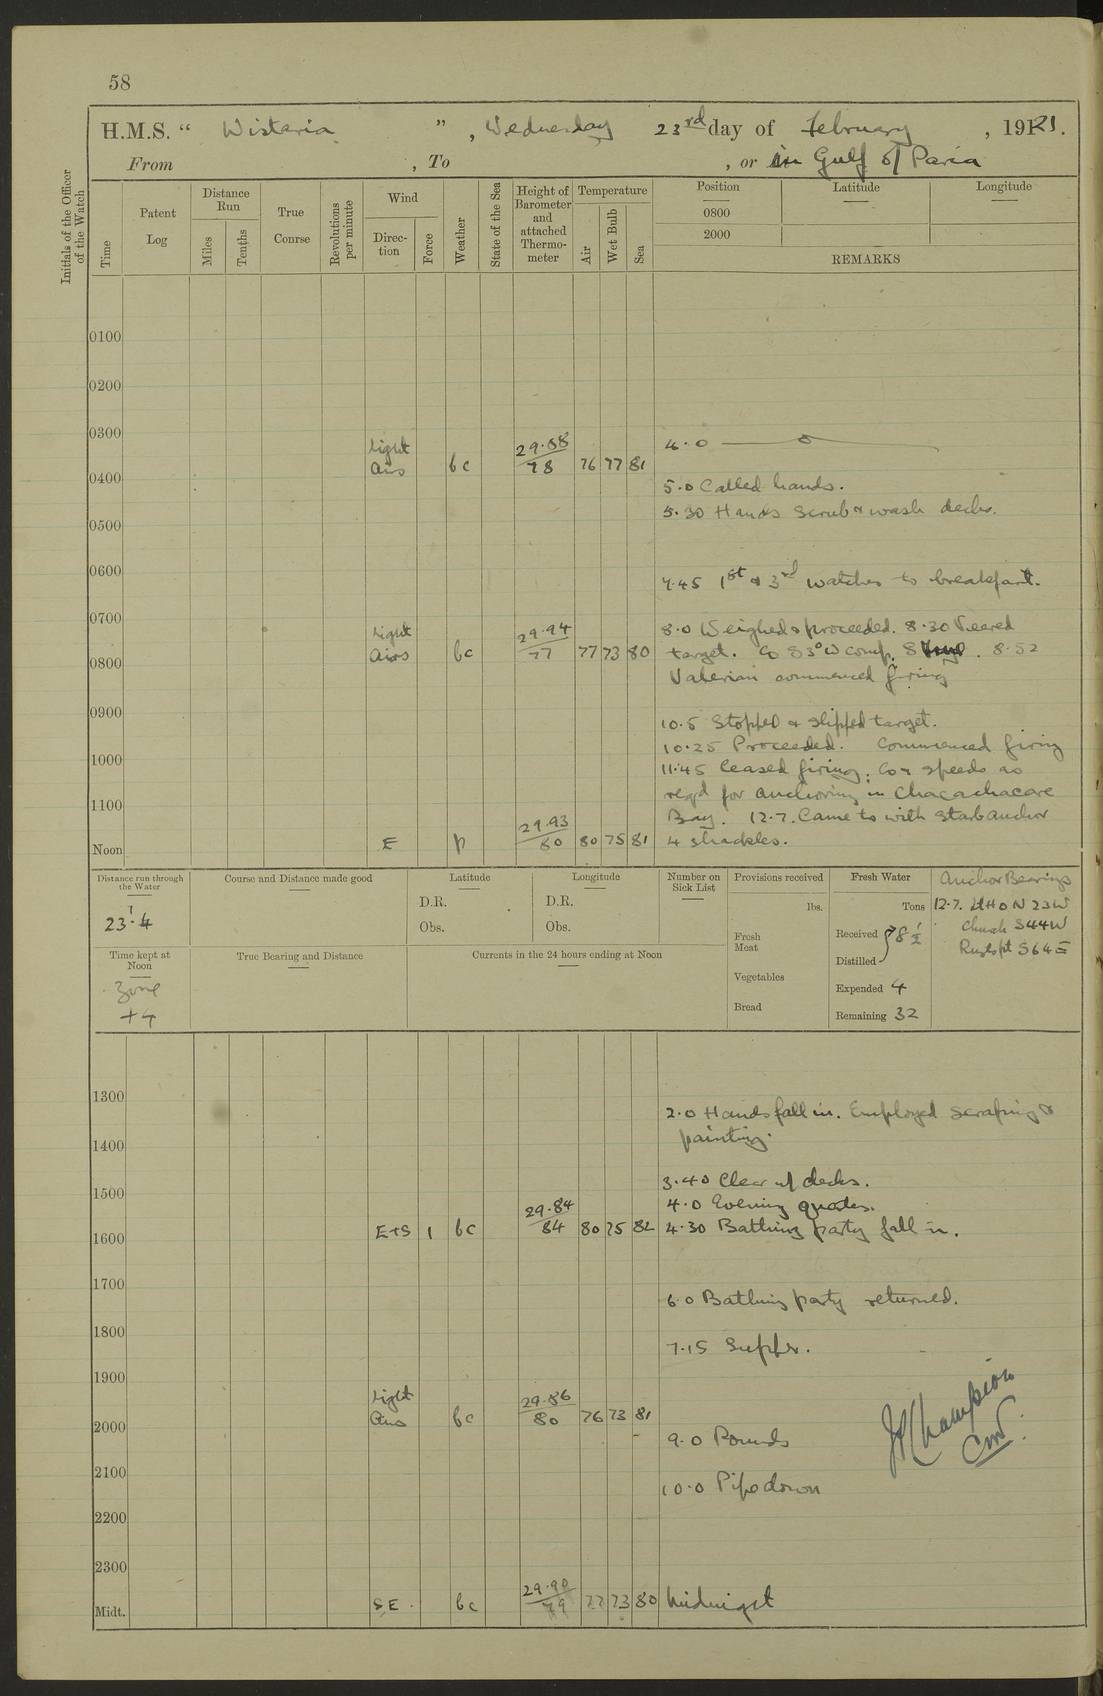 58
H.M.S. “ Wistaria ” , Wednesday 23rd day of February , 1921.
From , To , or in Gulf of Paria
Initials of the Officer of the Watch
Time
Patent Log
Distance Run
Miles
Tenths
True Course
Revolutions per minute
Wind
Direction
Force
Weather
State of the Sea
Height of Barometer and attached Thermometer
Temperature
Air
Wet Bulb
Sea
Position Latitude Longitude
0800
2000
REMARKS
0100
0200
0300
4.0
Light Airs bc 29.88 78 76 77 81
0400
5.0 Called hands.
5.30 Hands Scrub & wash decks.
0500
0600
7.45 1st & 3rd watches to breakfast.
0700
8.0 Weighed & proceeded. 8.30 Veered
Light Airs bc 29.94 77 77 73 80
target. Co S3°W comp. 8.52
0800
Valerian commenced firing
0900
10.5 Stopped & slipped target.
10.25 Proceeded. Commenced firing
1000
11.45 Ceased firing; Co & speeds as
reqd for anchoring in Chacachacare
1100
Bay. 12.7. Came to with Starb anchor
Noon E p 29.93 80 80 75 81 4 shackles.
Distance run through the Water
23.4
Course and Distance made good
Latitude
D.R.
Obs.
Longitude
D.R.
Obs.
Number on Sick List
Provisions received
lbs.
Fresh Meat
Vegetables
Bread
Fresh Water
Tons
Received
Distilled
8½
Expended 4
Remaining 32
Anchor Bearings
12.7. LtHo N 23W
Church S44W
S64E
Time kept at Noon
Zone
+4
True Bearing and Distance
Currents in the 24 hours ending at Noon
1300
2.0 Hands fall in. Employed scraping &
painting.
1400
3.40 Clear up decks.
1500
4.0 Evening quarters.
E+S 1 bc 29.84 84 80 75 82 4.30 Bathing party fall in.
1600
1700
6.0 Bathing party returned.
1800
7.15 Supper.
1900
Light Airs bc 29.86 80 76 73 81
2000
9.0 Rounds
JP Champion
2100
10.0 Pipe down
2200
2300
Midt. SE bc 29.90 79 77 73 80 Midnight